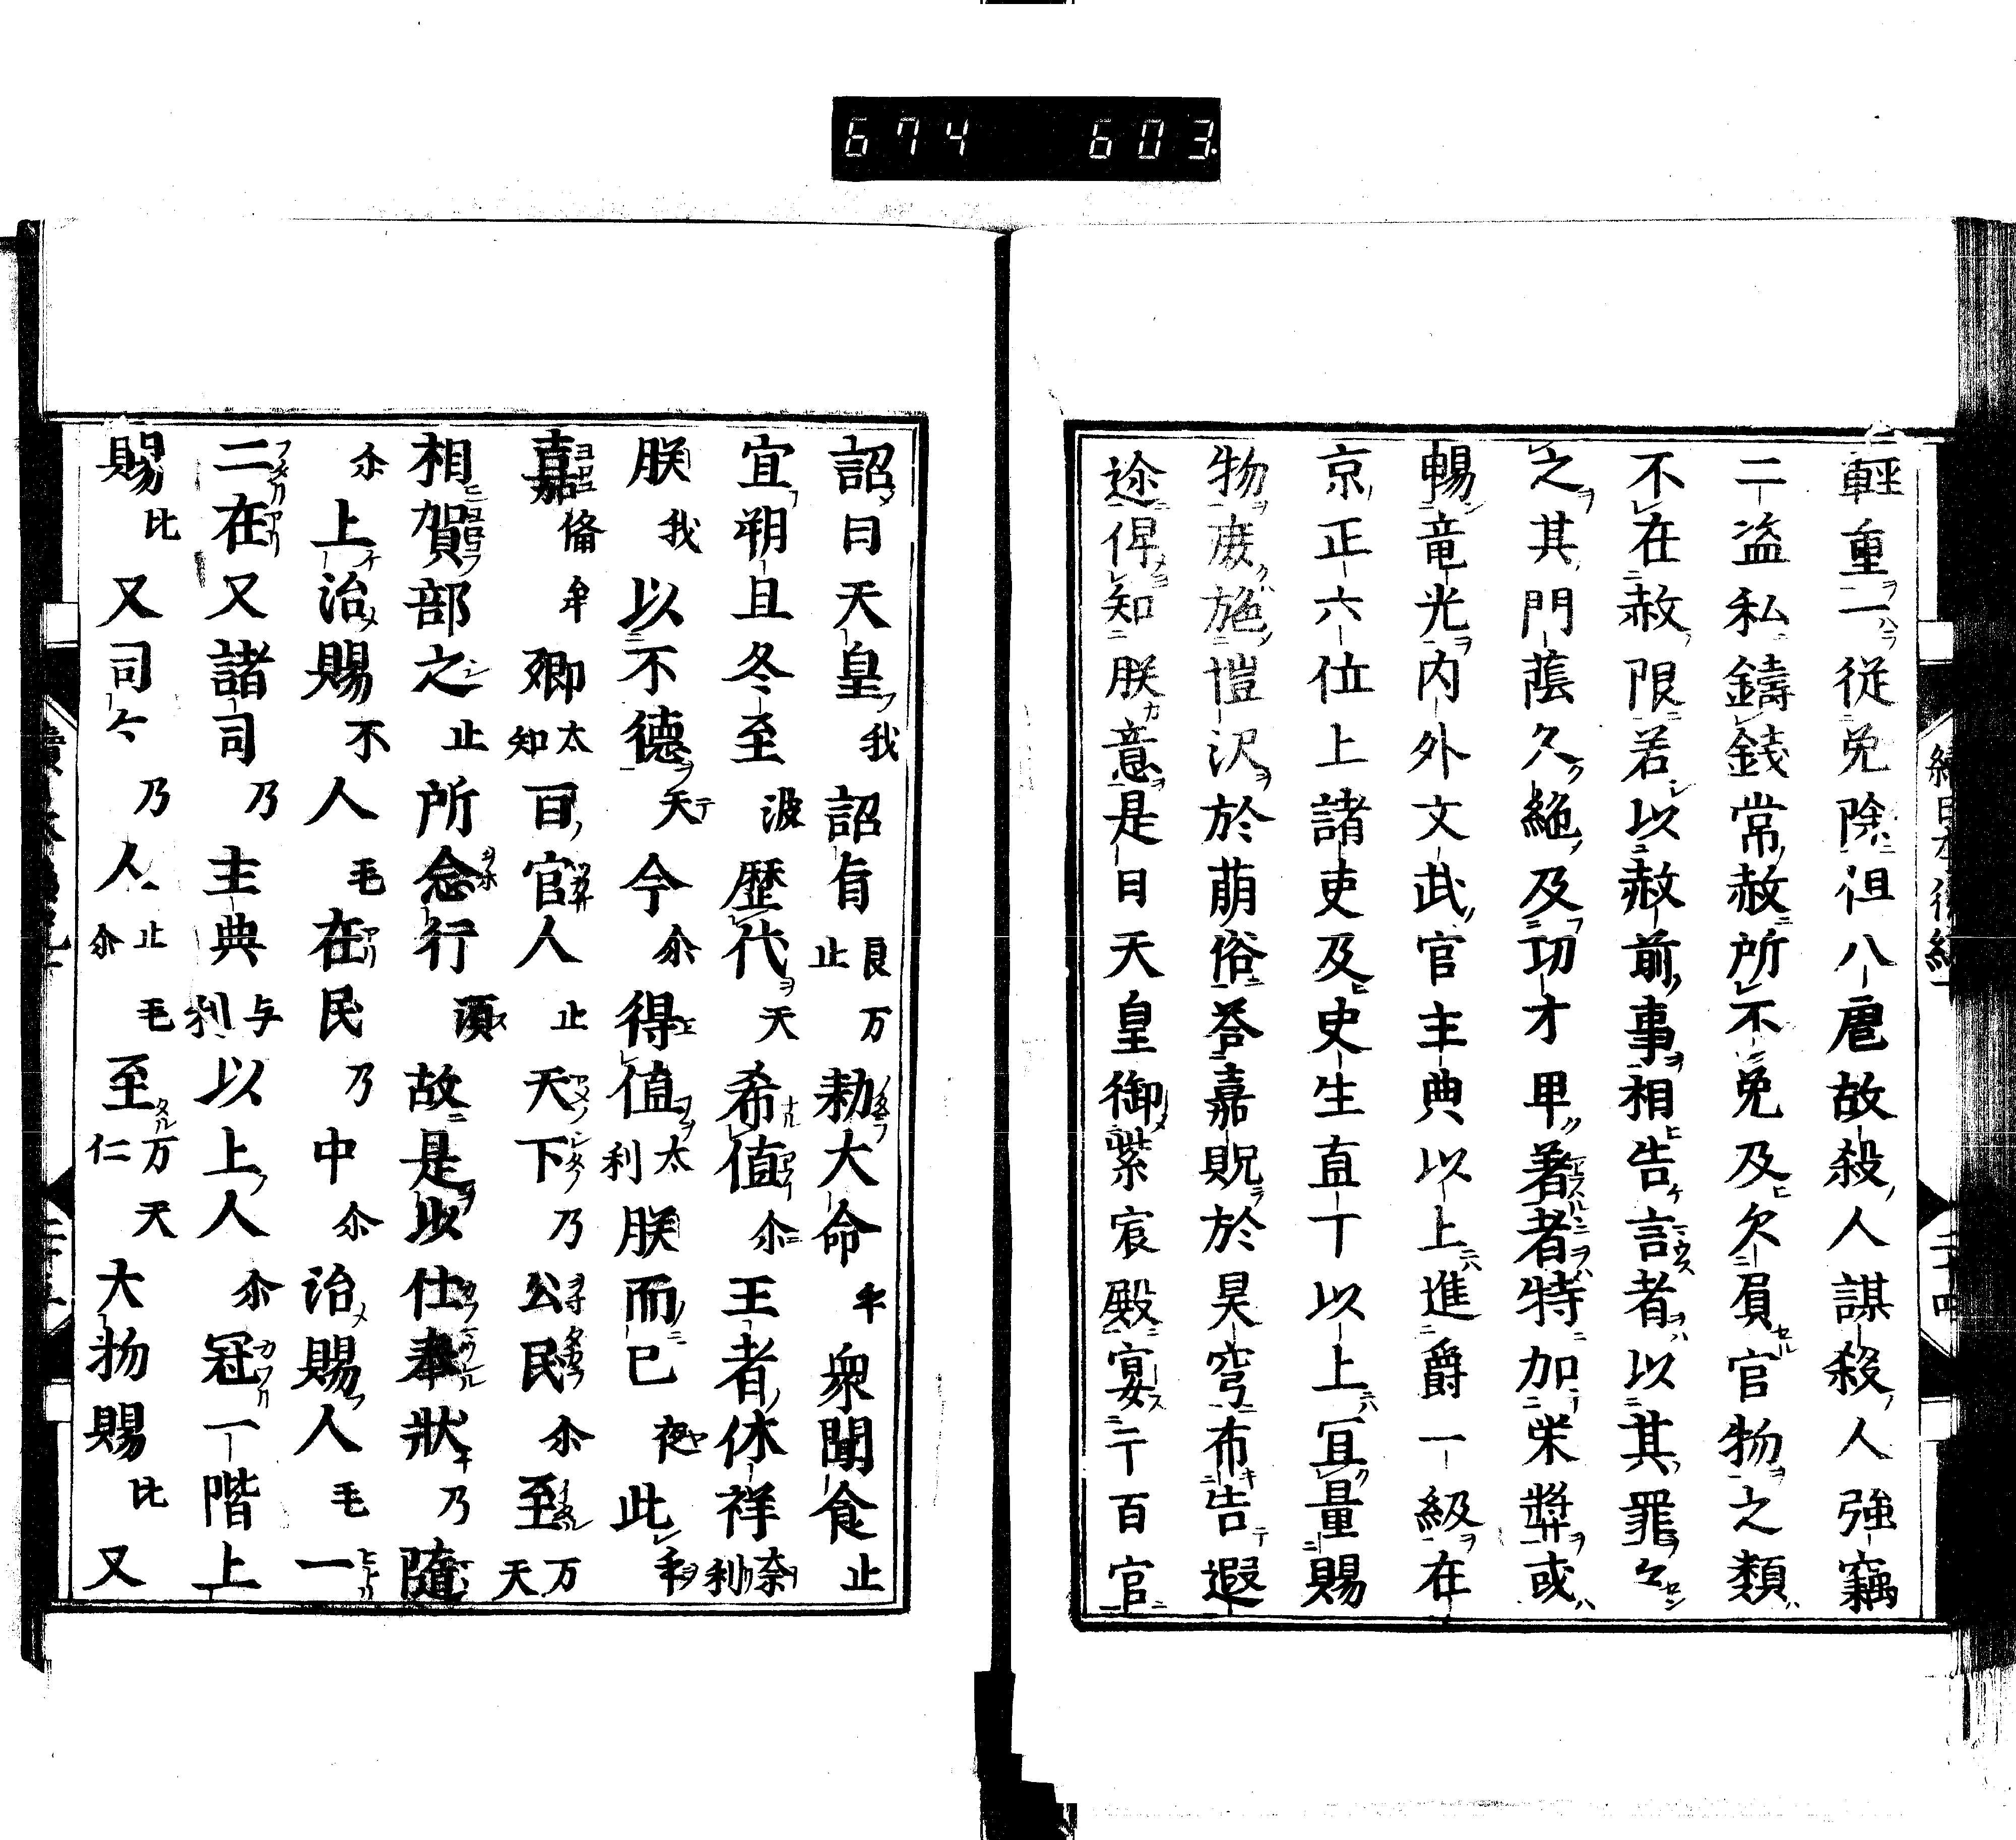 674 603
輕重一従免除但八虐故殺人謀殺人強竊
二盗私鑄錢常赦所不免及欠負官物之類
不在赦限若以赦前事相告言者以其罪々
之其門蔭久絶及功才甲著者特加栄奬或
暢竜光内外文武官主典以上進爵一級在
京正六位上諸吏及史生直丁以上冝量賜
物庶施愷沢於萠俗荅嘉貺於昊穹布告遐
迩俾知朕意是日天皇御紫宸殿宴于百官
詔曰天皇我詔旨良万止勅大命乎衆聞食止
宜朔旦冬至波歴代天希値尒王者休祥奈利
朕我以不徳天今尒得値太利朕而已夜此乎
嘉備牟卿太知百官人止天下乃公民尒至万天
相賀部之止所念行須故是以仕奉狀乃隨
尒上治賜不人毛在民乃中尒治賜人毛一
二在又諸司乃主典与利以上人尒冠一階上
賜比又司々乃人止尒毛至万仁天大物賜比又